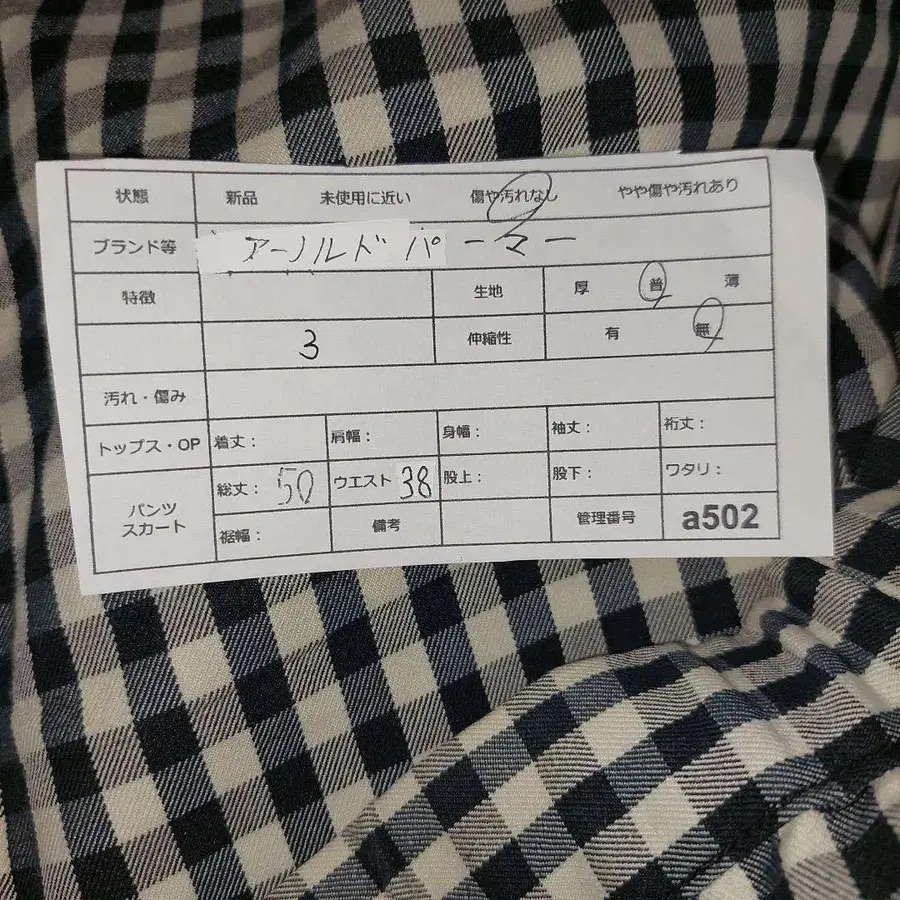 状態 新品 未使用に近い 傷や汚れなし やや傷や汚れあり
ブランド等 アーノルド パーマー
特徴 生地 厚 普 薄
3 伸縮性 有 無
汚れ・傷み
トップス・OP 着丈： 肩幅： 身幅： 袖丈： 裄丈：
パンツ スカート 総丈： 50 ウエスト 38 股上： 股下： ワタリ：
裾幅： 備考 管理番号 a502